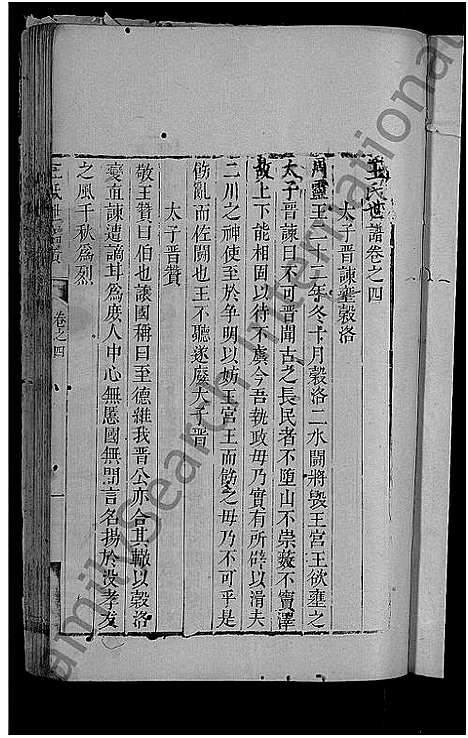 王氏世譜卷之四
太子晉諫壅穀洛
周靈王二十二年冬十月穀洛二水鬬將毀王宮王欲壅之
太子晉諫曰不可晉聞古之長民者不墮山不崇薮不竇澤
故上下能相固以待不虞今吾執政毋乃實有所辟以滑夫
二川之神使至於爭明以妨王宮王而飭之毋乃不可乎是
飭亂而佐鬬也王不聽遂廢大子晉
太子晉贊
敬王贊曰伯也讓國稱曰至德維我晉公亦合其轍以穀洛
變直諫遭謫耳為庶人中心無慝國無閒言名揚於没孝友
之風千秋為烈
王氏世譜
卷之四
一
FamilySearch International